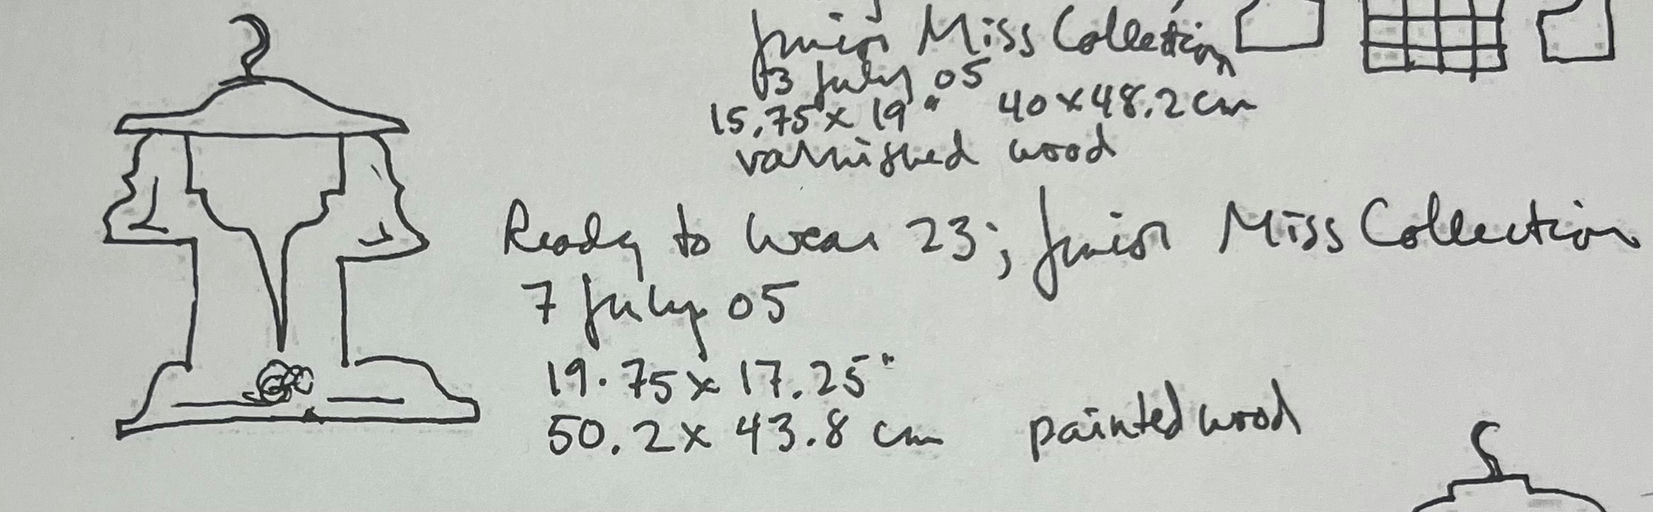 Junior Miss Collection
3 July 05
15.75 x 19" 40 x 48.2 cm
varnished wood
Ready to Wear 23; Junior Miss Collection
7 July 05
19.75 x 17.25"
50.2 x 43.8 cm painted wood